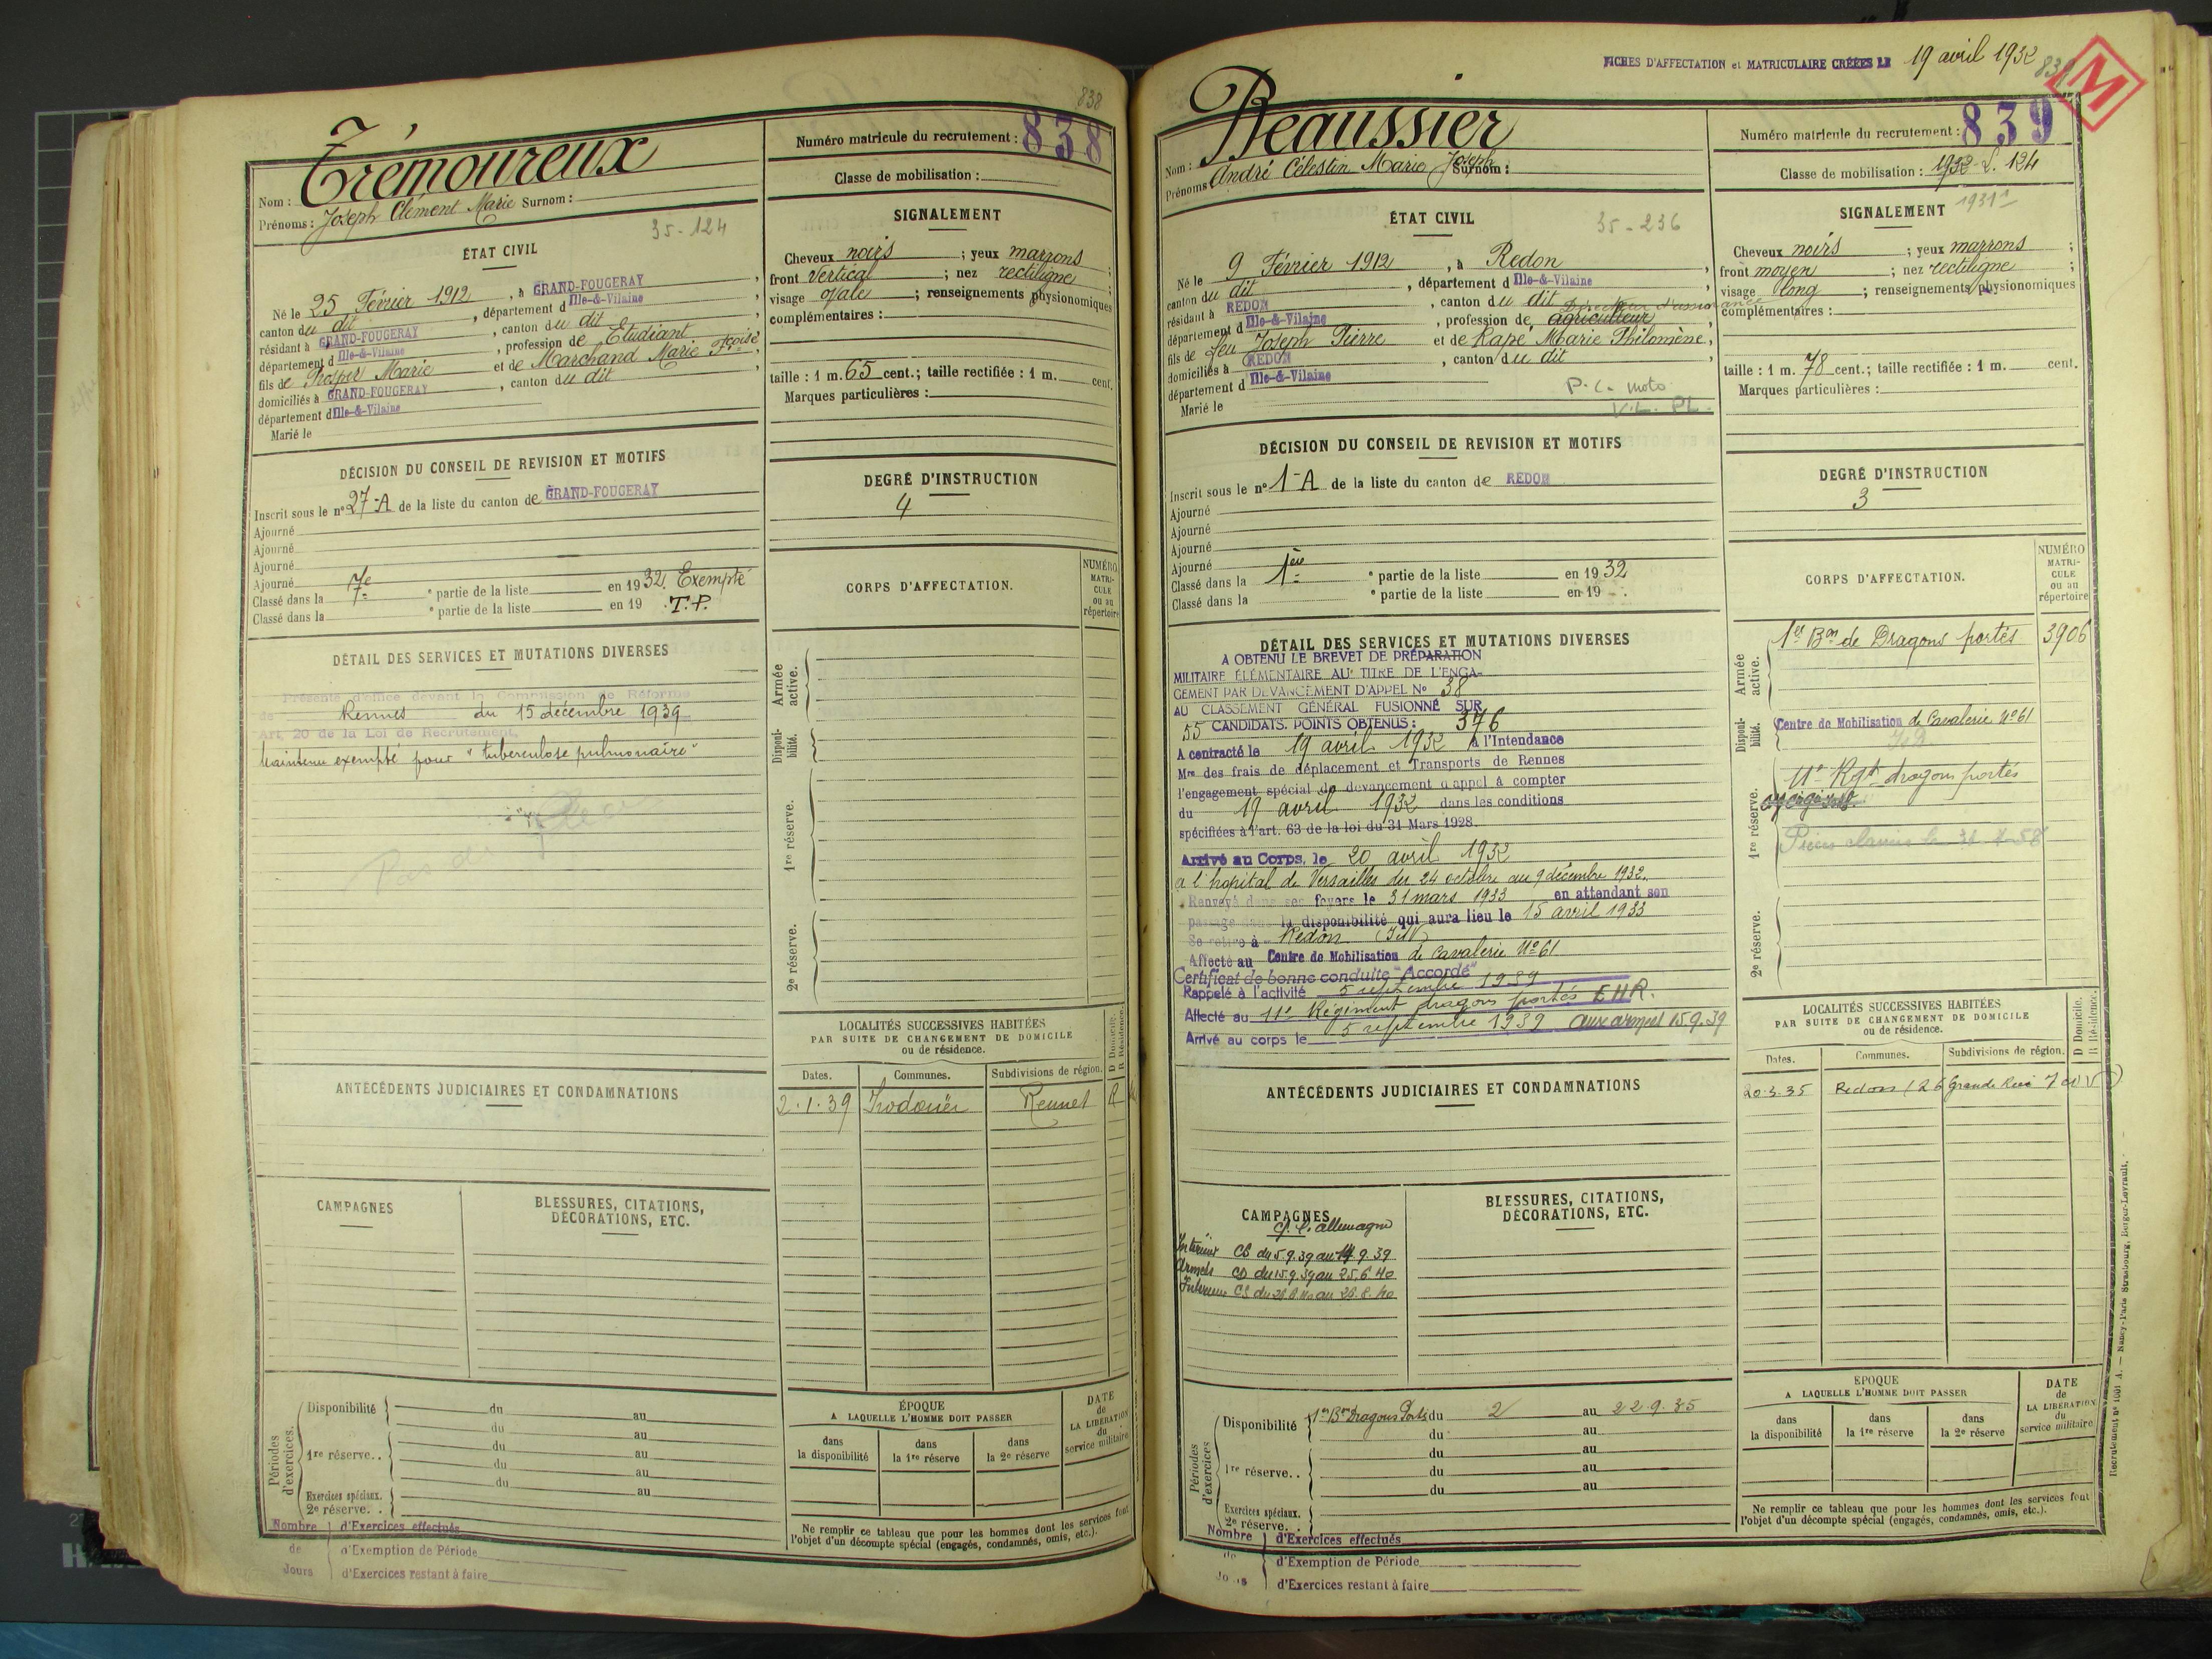 838
Numéro matricule du recrutement : 838
Classe de mobilisation :
Nom : Trémoureux
Prénoms : Joseph Clément Marie Surnom :
35-124
ÉTAT CIVIL
Né le 25 Février 1912, à GRAND-FOUGERAY,
canton du dit, département d Ille-&-Vilaine,
résidant à GRAND-FOUGERAY, canton du dit
département d Ille-&-Vilaine, profession de Etudiant
fils de Prosper Marie et de Marchand Marie Fçoise,
domiciliés à GRAND-FOUGERAY, canton du dit,
département d Ille-&-Vilaine
Marié le
SIGNALEMENT
Cheveux noirs ; yeux marrons ;
front vertical ; nez rectiligne ;
visage ovale ; renseignements physionomiques
complémentaires :
taille : 1 m. 65 cent. ; taille rectifiée : 1 m. cent.
Marques particulières :
DÉCISION DU CONSEIL DE REVISION ET MOTIFS
Inscrit sous le n° 27-A de la liste du canton de GRAND-FOUGERAY
Ajourné
Ajourné
Ajourné
Ajourné
Classé dans la 7e ° partie de la liste en 1932 Exempté
Classé dans la ° partie de la liste en 19 . T.P.
DEGRÉ D'INSTRUCTION
4
CORPS D'AFFECTATION.
NUMÉRO
MATRI-
CULE
ou au
répertoire
Armée
active.
Disponi-
bilité.
1re réserve.
2e réserve.
DÉTAIL DES SERVICES ET MUTATIONS DIVERSES
Présenté d'office devant la Commission de Réforme
de Rennes du 15 décembre 1939
Art. 20 de la Loi de Recrutement.
Maintenu exempté pour "tuberculose pulmonaire"
LOCALITÉS SUCCESSIVES HABITÉES
PAR SUITE DE CHANGEMENT DE DOMICILE
ou de résidence.
D Domicile.
R Résidence.
Dates. Communes. Subdivisions de région.
2.1.39 Irodouër Rennes R
ANTÉCÉDENTS JUDICIAIRES ET CONDAMNATIONS
CAMPAGNES
BLESSURES, CITATIONS,
DÉCORATIONS, ETC.
Périodes
d'exercices.
Disponibilité du au
du au
1re réserve. . du au
du au
du au
Exercices spéciaux.
2e réserve. .
Nombre d'Exercices effectués
de d'Exemption de Période
Jours d'Exercices restant à faire
ÉPOQUE
A LAQUELLE L'HOMME DOIT PASSER
dans
la disponibilité
dans
la 1re réserve
dans
la 2e réserve
DATE
de
LA LIBÉRATION
du
service militaire
Ne remplir ce tableau que pour les hommes dont les services font
l'objet d'un décompte spécial (engagés, condamnés, omis, etc.).
FICHES D'AFFECTATION et MATRICULAIRE CRÉÉES LE 19 avril 1932
M
Numéro matricule du recrutement : 839
Classe de mobilisation : 1932
Nom : Beaussier
Prénoms André Célestin Marie Joseph Surnom :
ÉTAT CIVIL
35-236
Né le 9 Février 1912, à Redon,
canton du dit, département d Ille-&-Vilaine
résidant à REDON, canton du dit
Directeur d'assurance
département d Ille-&-Vilaine, profession de agriculteur,
fils de feu Joseph Pierre et de Rapé Marie Philomène,
domiciliés à REDON, canton du dit,
département d Ille-&-Vilaine
Marié le
P.C. moto
V.L. PL.
SIGNALEMENT
Cheveux noirs ; yeux marrons ;
front moyen ; nez rectiligne ;
visage long ; renseignements physionomiques
complémentaires :
taille : 1 m. 78 cent. ; taille rectifiée : 1 m. cent.
Marques particulières :
DÉCISION DU CONSEIL DE REVISION ET MOTIFS
Inscrit sous le n° 1-A de la liste du canton de REDON
Ajourné
Ajourné
Ajourné
Ajourné
Classé dans la 1ère ° partie de la liste en 1932
Classé dans la ° partie de la liste en 19 .
DEGRÉ D'INSTRUCTION
3
CORPS D'AFFECTATION.
NUMÉRO
MATRI-
CULE
ou au
répertoire
Armée
active.
1er Bon de Dragons portés 3906
Disponi-
bilité.
Centre de Mobilisation de Cavalerie N°61
1re réserve.
11e Rgt dragons portés
2e réserve.
DÉTAIL DES SERVICES ET MUTATIONS DIVERSES
A OBTENU LE BREVET DE PRÉPARATION
MILITAIRE ÉLÉMENTAIRE AU TITRE DE L'ENGA-
GEMENT PAR DEVANCEMENT D'APPEL No 38
AU CLASSEMENT GÉNÉRAL FUSIONNÉ SUR
55 CANDIDATS. POINTS OBTENUS : 376
A contracté le 19 avril 1932 à l'Intendance
Mre des frais de déplacement et Transports de Rennes
l'engagement spécial de devancement d'appel à compter
du 19 avril 1932 dans les conditions
spécifiées à l'art. 63 de la loi du 31 Mars 1928.
Arrivé au Corps, le 20 avril 1932
a l'hopital de Versailles du 24 octobre au 9 décembre 1932.
Renvoyé dans ses foyers le 31 mars 1933 en attendant son
passage dans la disponibilité qui aura lieu le 15 avril 1933
Se retire à Redon (I&V)
Affecté au Centre de Mobilisation de Cavalerie N°61
Certificat de bonne conduite "Accordé"
Rappelé à l'activité 5 septembre 1939
Affecté au 11e Régiment dragons portés EHR.
Arrivé au corps le 5 septembre 1939 aux armées 15.9.39
LOCALITÉS SUCCESSIVES HABITÉES
PAR SUITE DE CHANGEMENT DE DOMICILE
ou de résidence.
D Domicile.
R Résidence.
Dates. Communes. Subdivisions de région.
20.3.35 Redon (26 Grande Rue
ANTÉCÉDENTS JUDICIAIRES ET CONDAMNATIONS
CAMPAGNES
C. l'allemagne
Intérieur CS du 5.9.39 au 14.9.39
Armées CD du 15.9.39 au 25.6.40
Intérieur CS du 26.6.40 au 28.8.40
BLESSURES, CITATIONS,
DÉCORATIONS, ETC.
Périodes
d'exercices
Disponibilité 1er Bon Dragons Portés du 2 au 22.9.35
du au
du au
1re réserve. . du au
du au
Exercices spéciaux.
2e réserve. .
Nombre d'Exercices effectués
de d'Exemption de Période
Jours d'Exercices restant à faire
ÉPOQUE
A LAQUELLE L'HOMME DOIT PASSER
dans
la disponibilité
dans
la 1re réserve
dans
la 2e réserve
DATE
de
LA LIBÉRATION
du
service militaire
Ne remplir ce tableau que pour les hommes dont les services font
l'objet d'un décompte spécial (engagés, condamnés, omis, etc.).
Recrutement n° 1001 A. — Nancy-Paris Strasbourg, Berger-Levrault.